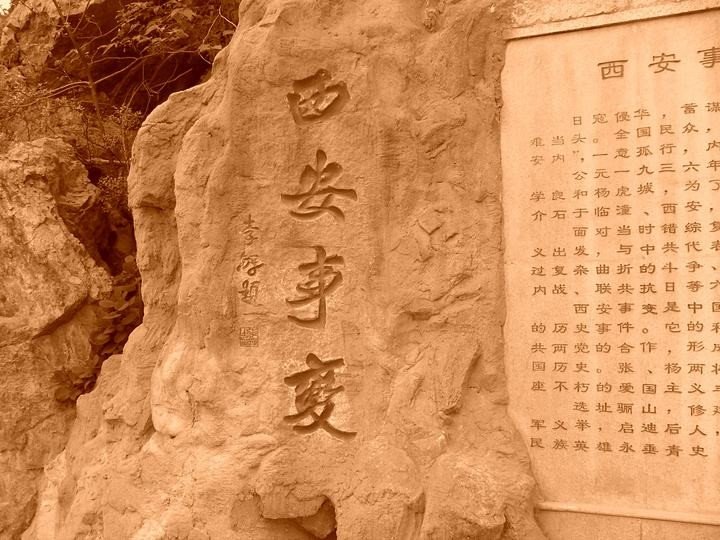 西安事變
西安事
日寇侵华，蓄谋
难当头。全国民众，
安内”，一意孤行，内
公元一九三六年
学良和杨虎城，为了
介石于临潼、西安，
面对当时错综复
义出发，与中共代表、
过复杂、曲折的斗争，
内战、联共抗日等六
西安事变是中国
的历史事件。它的和
共两党的合作，形成
国历史。张、杨两将
座不朽的爱国主义
选址骊山，修建
军义举，启迪后人
民族英雄永垂青史